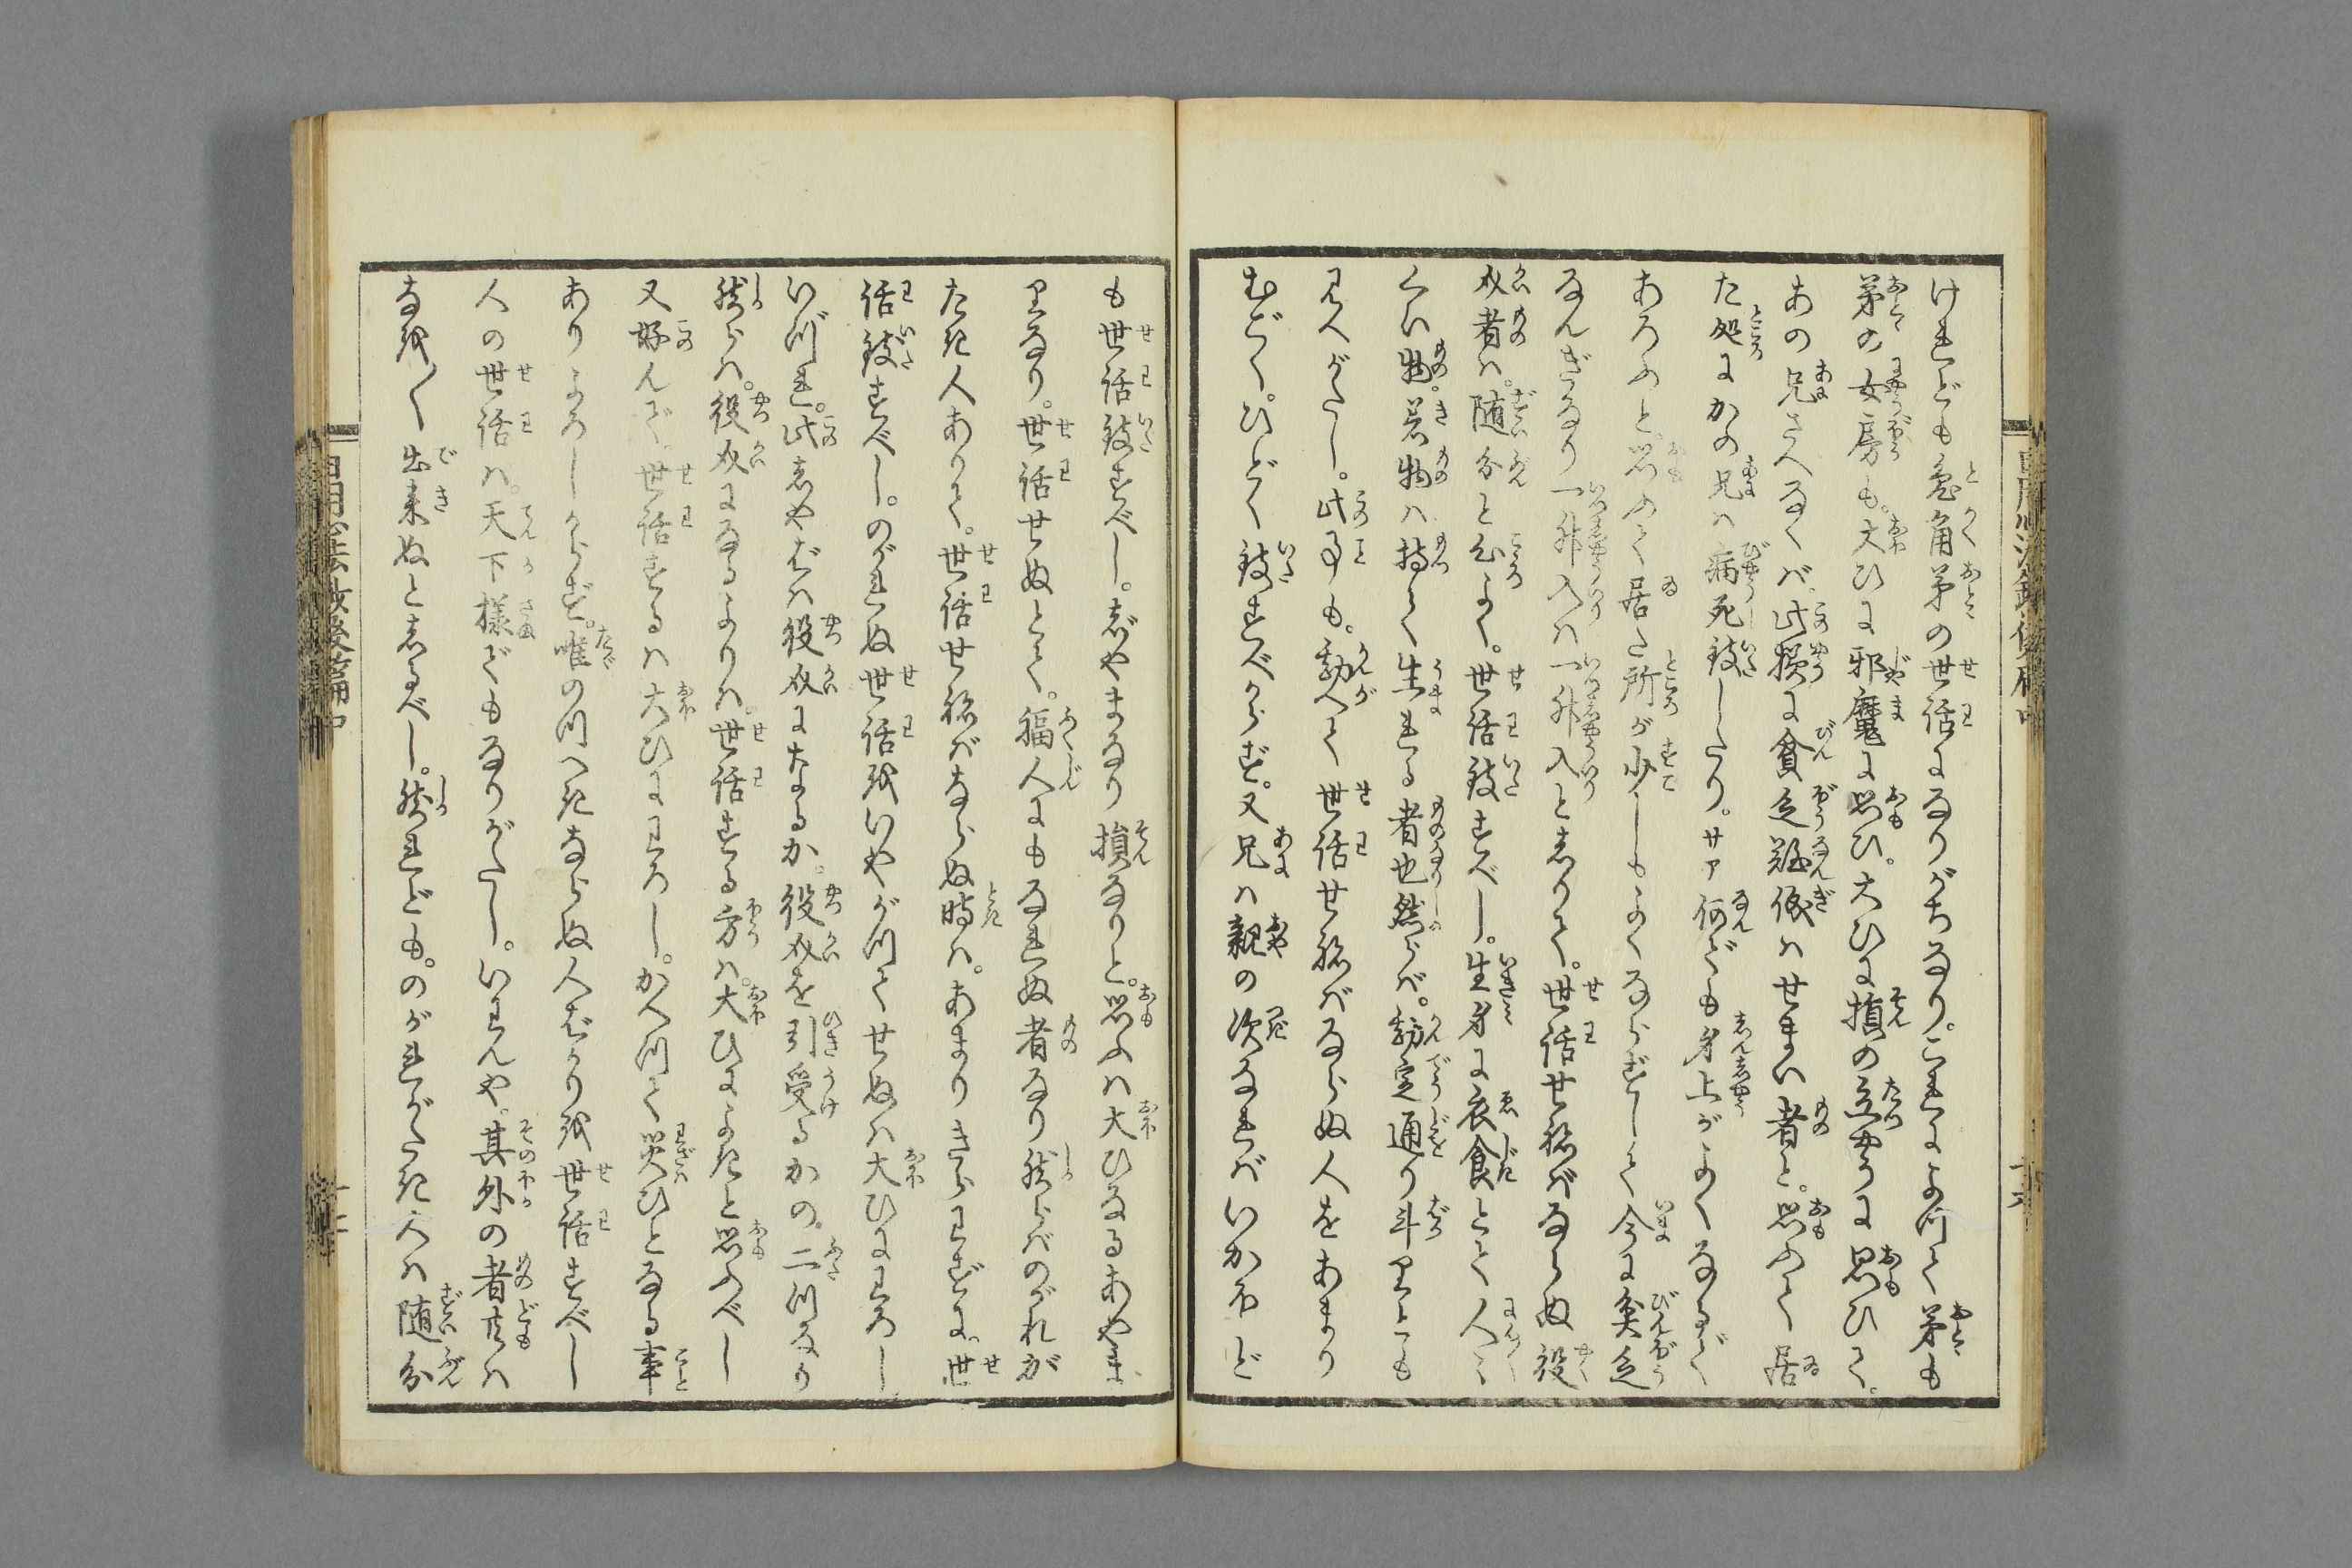 けれども兎角弟の世話になりがちなり。これによつて弟も
弟の女房も。大ひに邪魔に思ひ。大ひに損の立やうに思ひて。
あの兄さへなくバ。此様に貧乏難儀ハせまい者と。思ふて居
た処にかの兄ハ病死致したり。サア何でも身上がよくなるで
あろふと。思ふて居た所が少しもよくならずして今に貧乏
なんぎなり一升入ハ一升入としりて。世話せねバならぬ役
介者ハ。随分と心よく。世話致すべし。生身に衣食とて人〻
くい物。着物ハ持て生れる者也然らバ。勘定通り斗りとも
見へがたし。此事も。勘へて世話せねバならぬ人をあまり
むごく。ひどく致すべからず。又兄ハ親の次なれバいかほど
も世話致すべし。じやまなり損なりと。思ふハ大ひなるあやま
りなり。世話せぬとて。福人にもなれぬ者なり然らバのがれが
たき人ありて。世話せねバならぬ時ハ。あまりきらわずに。世
話致すべし。のがれぬ世話をいやがつてせぬハ大ひにわろし
いづれ。此しやばハ役介になるか。役介を引受るかの。二つなり
然らハ。役介になるよりハ。世話する方ハ。大ひによきと思ふべし
又好んで。世話するハ大ひにわろし。かへつて災ひとなる事
ありよろしからず。唯のつへきならぬ人ばかりを世話すべし
人の世話ハ。天下様でもなりがたし。いわんや。其外の者共ハ
なを〱出来ぬとしるべし。然れども。のがれがたき人ハ随分